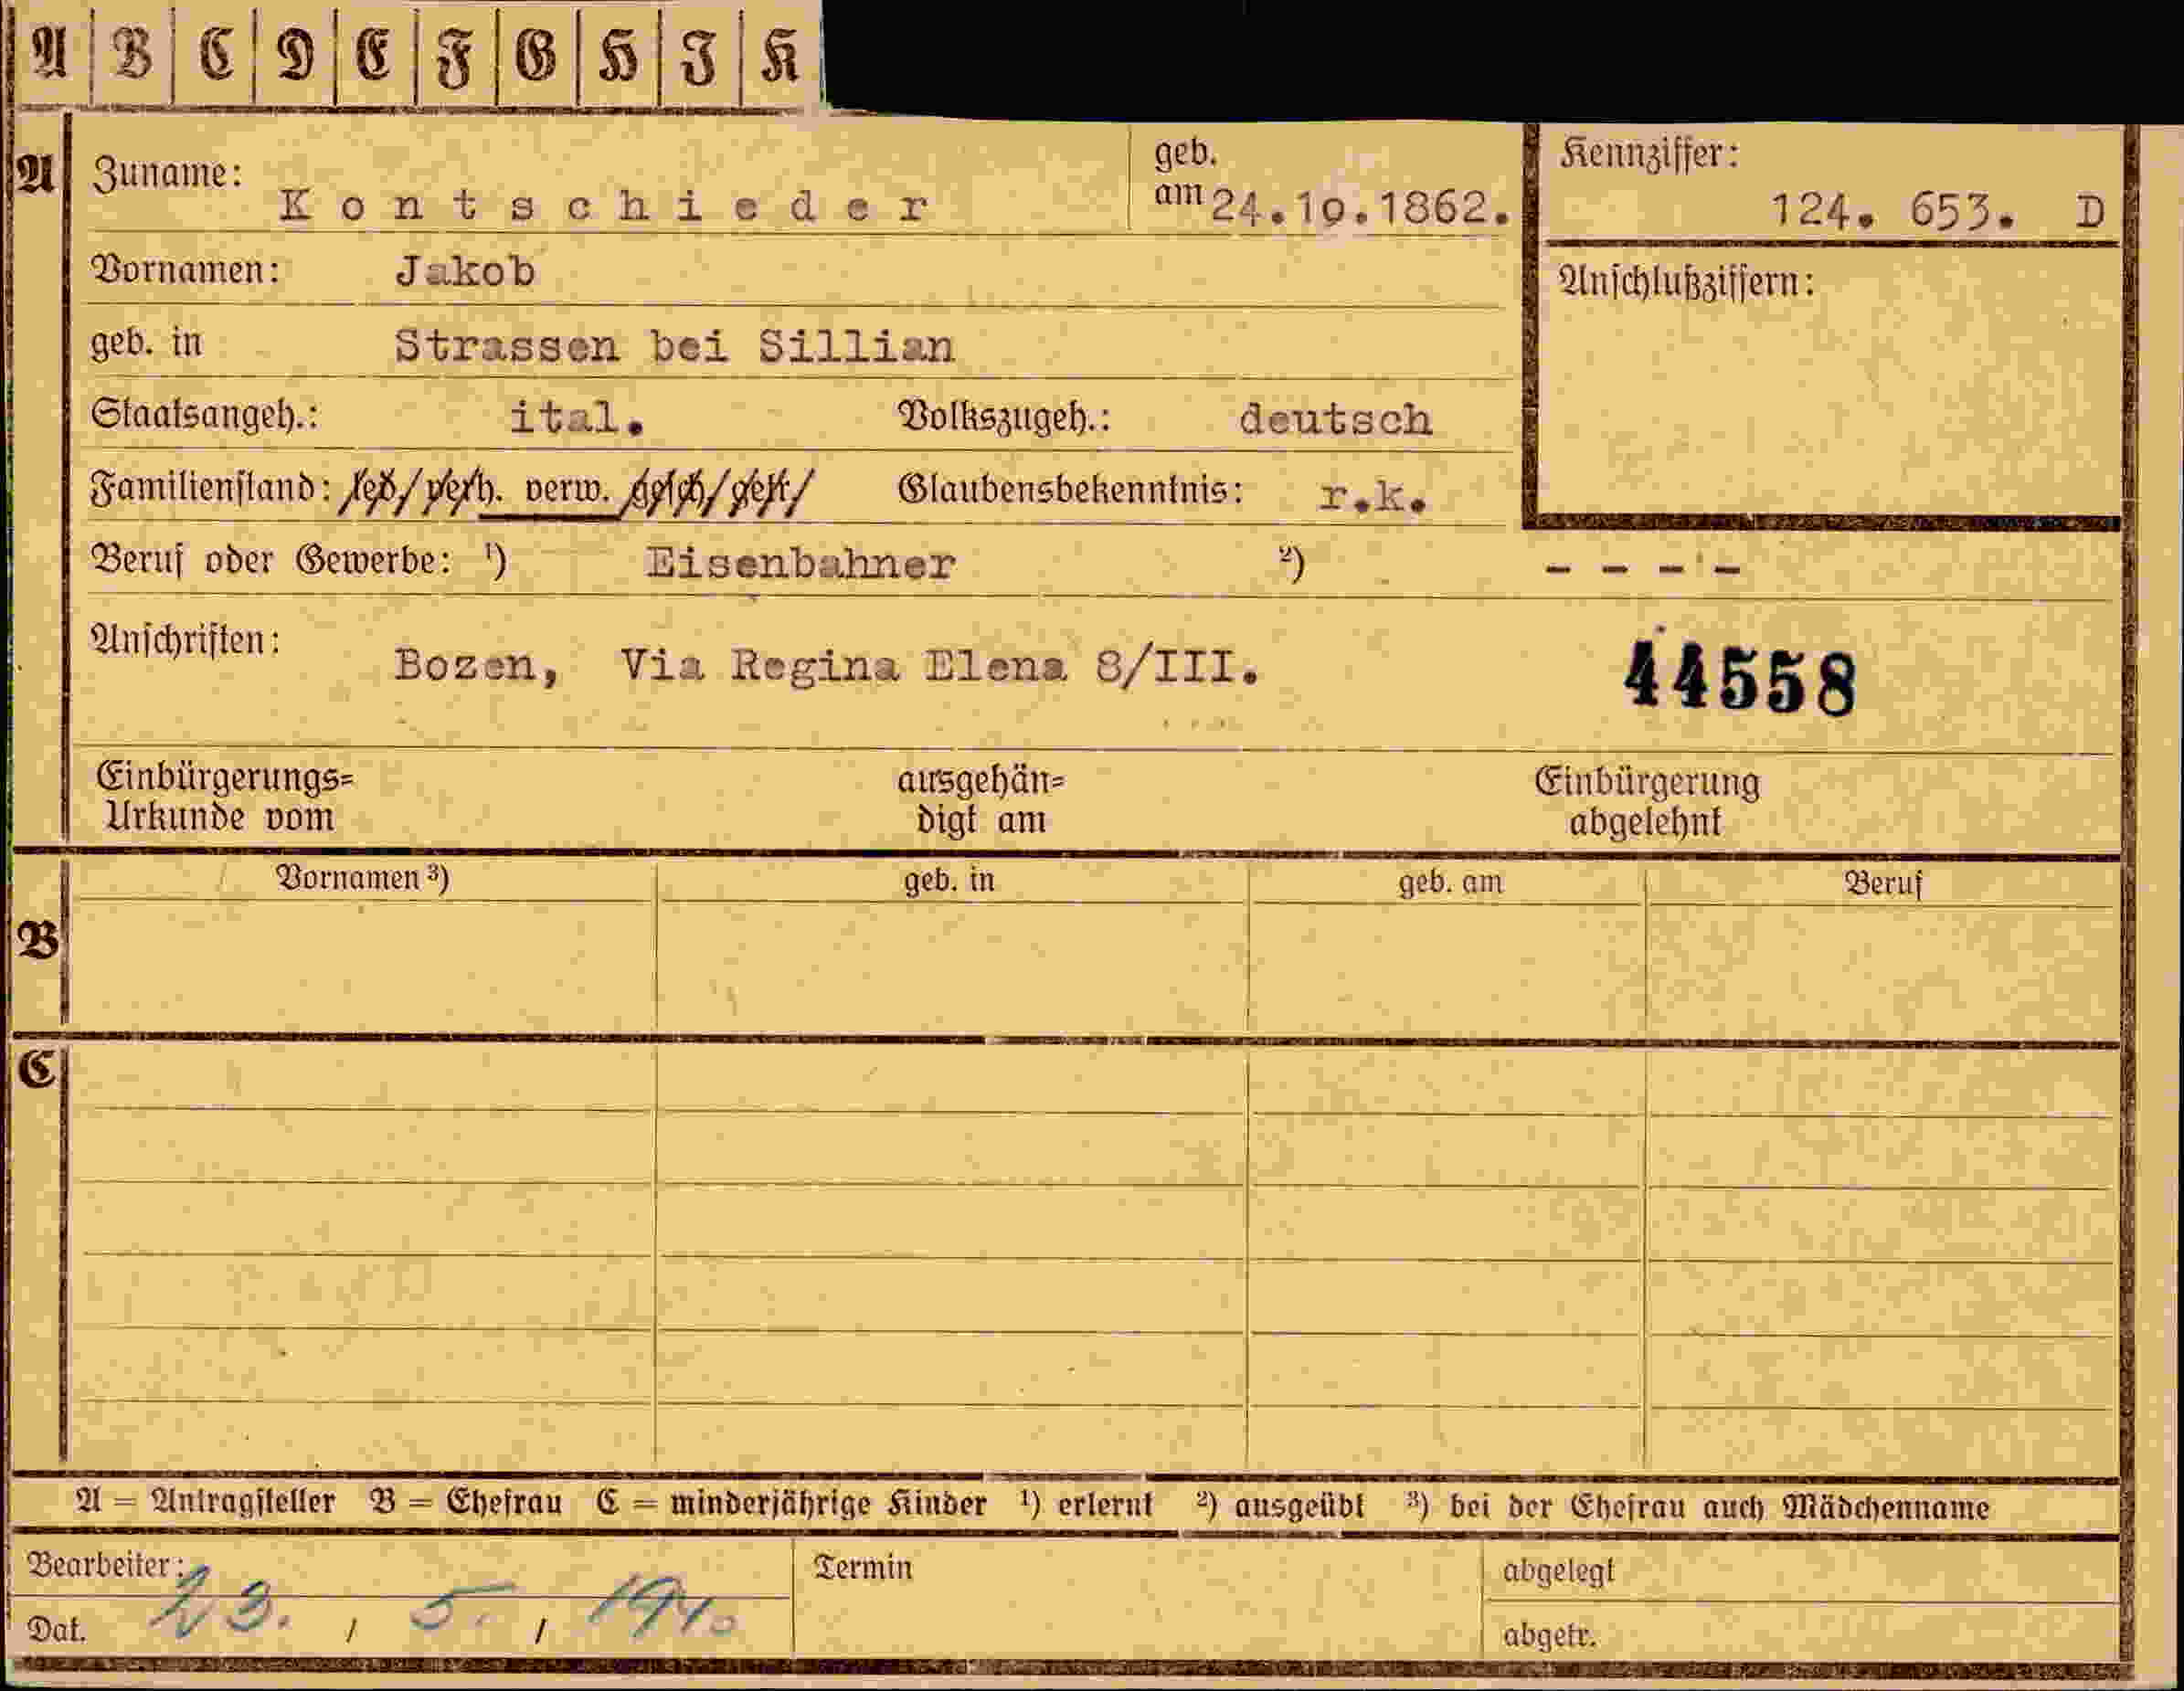 A B C D E F G H I K
A Zuname: Kontschieder geb. am 24.10.1862. Kennziffer: 124. 653. D
Vornamen: Jakob Anschlußziffern:
geb. in Strassen bei Sillian
Staatsangeh.: ital. Volkszugeh.: deutsch
Familienstand: led./verh. verw. gesch./getr./ Glaubensbekenntnis: r.k.
Beruf oder Gewerbe: ¹) Eisenbahner ²) - - - -
Anschriften: Bozen, Via Regina Elena 8/III. 44558
Einbürgerungs= ausgehän= Einbürgerung
Urkunde vom digt am abgelehnt
Vornamen ³) geb. in geb. am Beruf
B
C
A = Antragsteller B = Ehefrau C = minderjährige Kinder ¹) erlernt ²) ausgeübt ³) bei der Ehefrau auch Mädchenname
Bearbeiter: Termin abgelegt
Dat. 23. / 5. / 1940 abgetr.